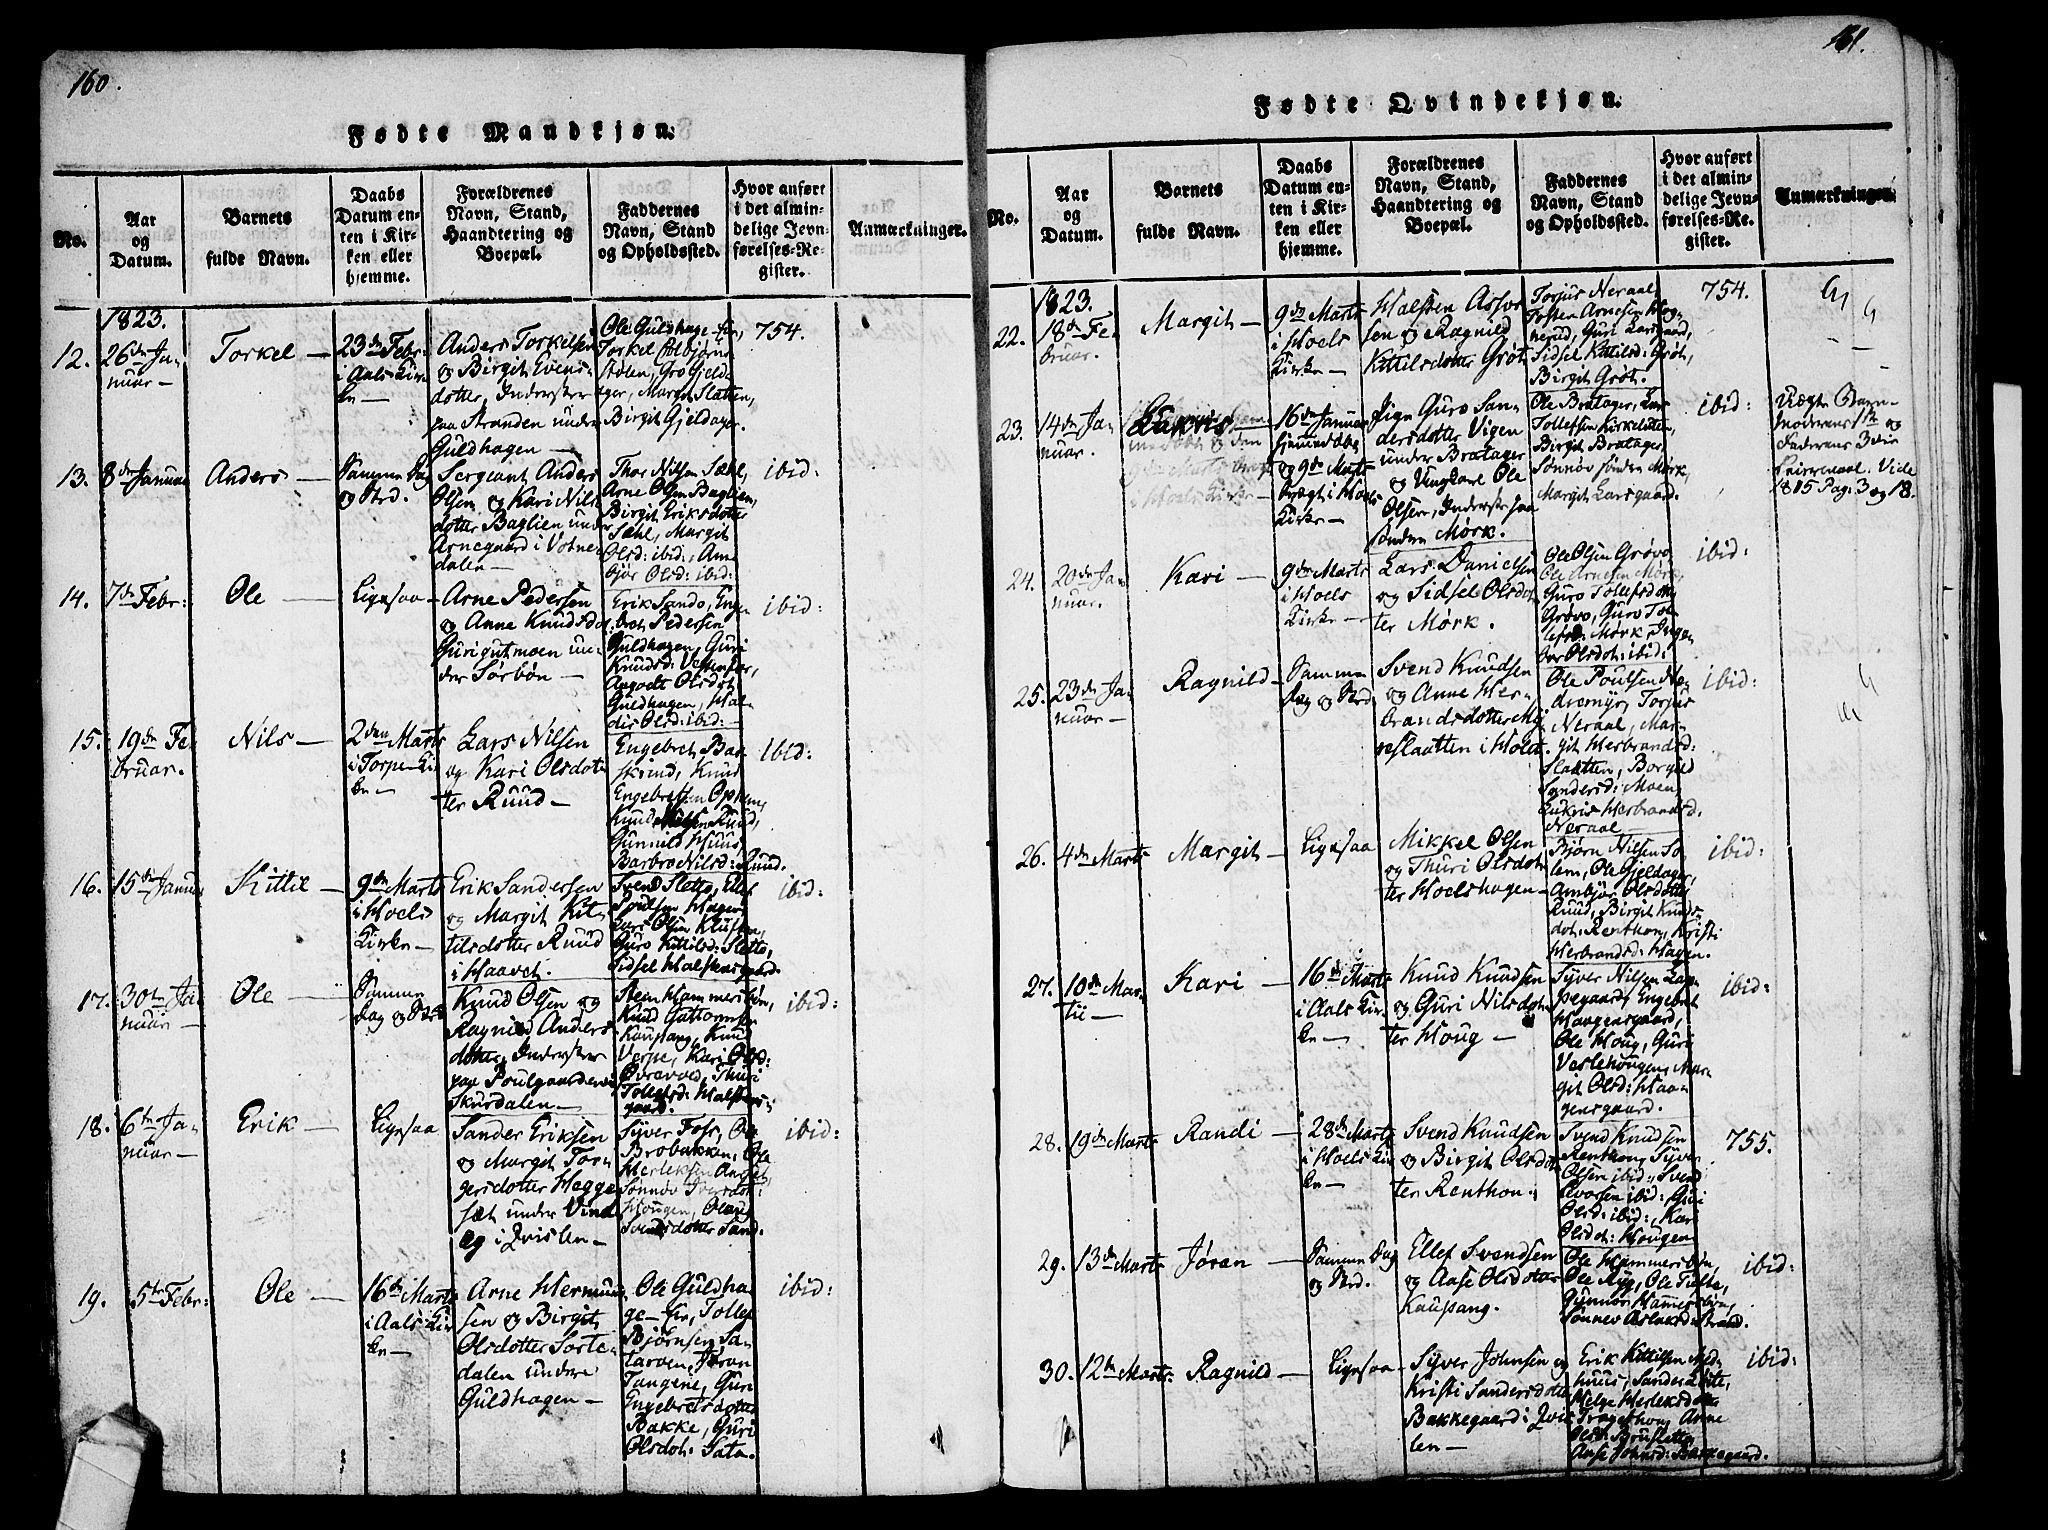 160.
Fødte Mandkjøn.
No.
Aar
og
Datum.
Barnets
fulde Navn.
Daabs
Datum en-
ten i Kir-
ken eller
hjemme.
Forældrenes
Navn, Stand,
Haandtering og
Boepæl.
Faddernes
Navn, Stand
og Opholdssted.
Hvor anført
i det almin-
delige Jevn-
førelses-Re-
gister.
Anmærkninger.
1823.
12.
26de Ja-
nuar —
Torkel —
23de Febr:
i Aals Kir-
ke —
Anders Torkelsen
og Birgit Evens-
dotter, Inderster
paa Stranden under
Guldhagen —
Ole Guldhage
Torkel
Stolen, Gro Gjeld-
ager, Margit Slatten,
Birgit Gjeldager.
754.
13.
8de Januar
Anders —
Samme Dag
og Sted.
Sergeant Anders
Olsen og Kari Nils-
dotter Baglien under
Arnegaard i Votne-
dalen —
Thor Nilsen Sæhl,
Arne Olsen Baglien,
Birgit Eriksdotter
Sæhl, Margit
Olsd: ibid:, Anne
bjør Olsd: ibid:
ibid:
14.
7de Febr:
Ole —
Ligesaa —
Arne Pedersen
og Anne Knudsdot
Gurigutmoen un-
der Sørbøn —
Erik Sando, Enge-
bret Pedersen
Guldhagen, Guri
Knudsd:
Olsdot:
Guldhagen,
Olsd: ibid: —
ibid:
15.
19de Fe-
bruar.
Nils —
2den Marts
i Torpe Kir-
ke —
Lars Nilsen
og Kari Olsdot-
ter Ruud —
Engebret Bak-
skind, Knud
Engebretsen Opheim,
Knud Nilsen Ruud,
Gunnild Huus,
Barbro Nilsd: Ruud.
ibid:
16.
15de Januar
Kittil —
9de Marts
i Hoels
Kirke —
Erik Sandersen
og Margit Kit-
tilsdotter Ruud
i Haavet.
Svend Sletto, Ellef
Poulsen Hagen,
Lars Olsen
Guro Kittilsd: Sletto,
Sidsel Halstensgaard.
ibid:
17.
30te Ja-
nuar —
Ole —
Samme
Dag og Sted
Knud Olsen og
Ragnild Anders-
dotter, Inderster
paa Poulgaarden i
Skurdalen —
Stein Hammersbøn,
Knud Guttormsen
Kaupang, Knud
Verpe, Kari Olsd:
Øvrevold, Thuri
Tollefsd: Halstens-
gaard.
ibid:
18.
6te Ja-
nuar —
Erik —
Ligesaa
Sander Eriksen
og Margit Tor-
gersdotter Hegge
sæt under Vind-
eg i Qvislen —
Syver Foss, Ole
Brobakken, Ole
Herleksen
Sønnøv Iversdot:
Hougen,
Svendsdotter Sand.
ibid:
19.
5te Febr:
Ole —
16de Marts
i Aals Kir-
ke —
Arne Hermund-
sen og Birgit
Olsdotter Sorte-
dalen under
Guldhagen —
Ole Guldha-
ge, Tollef
Bjørnsen Sa-
tarven, Jøran
Tangene, Guri
Engebretsdotter
Bakke, Guri
Olsdot: Sata.
ibid:
161.
Fødte Qvindekjøn.
No.
Aar
og
Datum.
Barnets
fulde Navn.
Daabs
Datum en-
ten i Kir-
ken eller
hjemme.
Forældrenes
Navn, Stand,
Haandtering og
Boepæl.
Faddernes
Navn, Stand
og Opholdssted.
Hvor anført
i det almin-
delige Jevn-
førelses-Re-
gister.
Anmærkninger.
1823.
22.
18de Fe-
bruar.
Margit —
9de Marts
i Hoels
Kirke —
Halsten Asle-
sen og Ragnild
Kittilsdotter Grøt
Torjus Neraal,
Tosten Arnesen Hog-
nerud, Guri Larsgaard,
Sidsel Kittilsd: Grøt,
Birgit Grøt.
754.
23.
14de Ja-
nuar.
Lukris —
16de Januar
hjemmedøbt
og 9de Marts
frægt i Hoels
Kirke —
Pige Guro San-
dersdotter Vigen
under Bratager
og Ungkarl Ole
Olsen, Inderste paa
Søndre Mørk.
Ole Bratager, Lars
Tollefsen Kirkeslotten,
Birgit Bratager,
Sønnøv søndre Mørk,
Margit Larsgaard.
ibid:
Uægte Barn
Moderens 1ste og
Faderens 3die
Leiermaal. Vide
1815 Pag: 3 og 18.
24.
20de Ja-
nuar.
Kari —
9de Marts
i Hoels
Kirke —
Lars Danielsen
og Sidsel Olsdot-
ter Mørk.
Ole Olsen Grøvo,
Ole Arnesen Mørk,
Guro Tollefsdot:
Grøvo, Guro Tol-
lefsd: Mørk, Inge-
bor Olsdot: ibid:
ibid:
25.
23de Ja-
nuar —
Ragnild —
Samme
Dag og Sted
Svend Knudsen
og Anne Her-
brandsdotter
slaatten i Hoel.
Ole Poulsen Ne-
dremyr, Torjus
Neraal, Mar-
git Herbrandsd:
Slaatten, Borgild
Sandersd: Moen,
Lukris Herbrandsd:
Neraal
ibid:
26.
4de Marts
Margit —
Ligesaa
Mikkel Olsen
og Thuri Olsdot-
ter Hoelshagen —
Bjørn Nilsen So-
lem, Ole Gjeldager,
Ambjør Olsdotter
Ruud, Birgit Knuds-
dot: Renthon, Kristi
Herbrandsd: Hagen.
ibid:
27.
10de Mar-
tii —
Kari —
16de Marts
i Aals Kir-
ke —
Knud Knudsen
og Guri Nilsdot-
ter Houg —
Syver Nilsen Lap-
pegaard, Engebret
Haugensgaard,
Ole Houg, Guri
Veslehougen, Mar-
git Olsd: Haa-
gensgaard.
ibid:
28.
19de Marts
Randi —
28de Marts
i Hoels Kir-
ke —
Svend Knudsen
og Birgit Olsdot-
ter Renthon.
Svend Knudsen
Renthon, Syver
Olsen ibid:, Svend
ibid:, Guri
Olsd: ibid:, Kari
Olsdot: Hougen
755.
29.
13de Marts
Jøran —
Samme Dag
og Sted.
Ellef Svendsen
og Aase Olsdotter
Kaupang.
Ole Hammersbøn,
Ole Ryg, Ole Tufto,
Gunnor Hammersbøn,
Sønnev Aslaksd: Strand.
ibid:
30.
12te Marts
Ragnild —
Ligesaa —
Syver Johnsen og
Kristi Sandersdotter
Bakkegaard i Qvis-
len —
Erik Kittilsen Med-
huus, Sander Lotte,
Helge Herleksdot:
Tragethon, Anne
Olsd: Bruslette,
Aase Johnsd: Bakkegaard.
ibid: